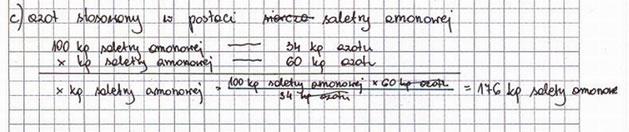 c) azot stosowany w postaci saletry amonowej
100 kg saletry amonowej — 34 kg azotu
x kg saletry amonowej — 60 kg azotu
x kg saletry amonowej = 100 kg saletry amonowej × 60 kg azotu / 34 kg azotu = 176 kg salety amonowe